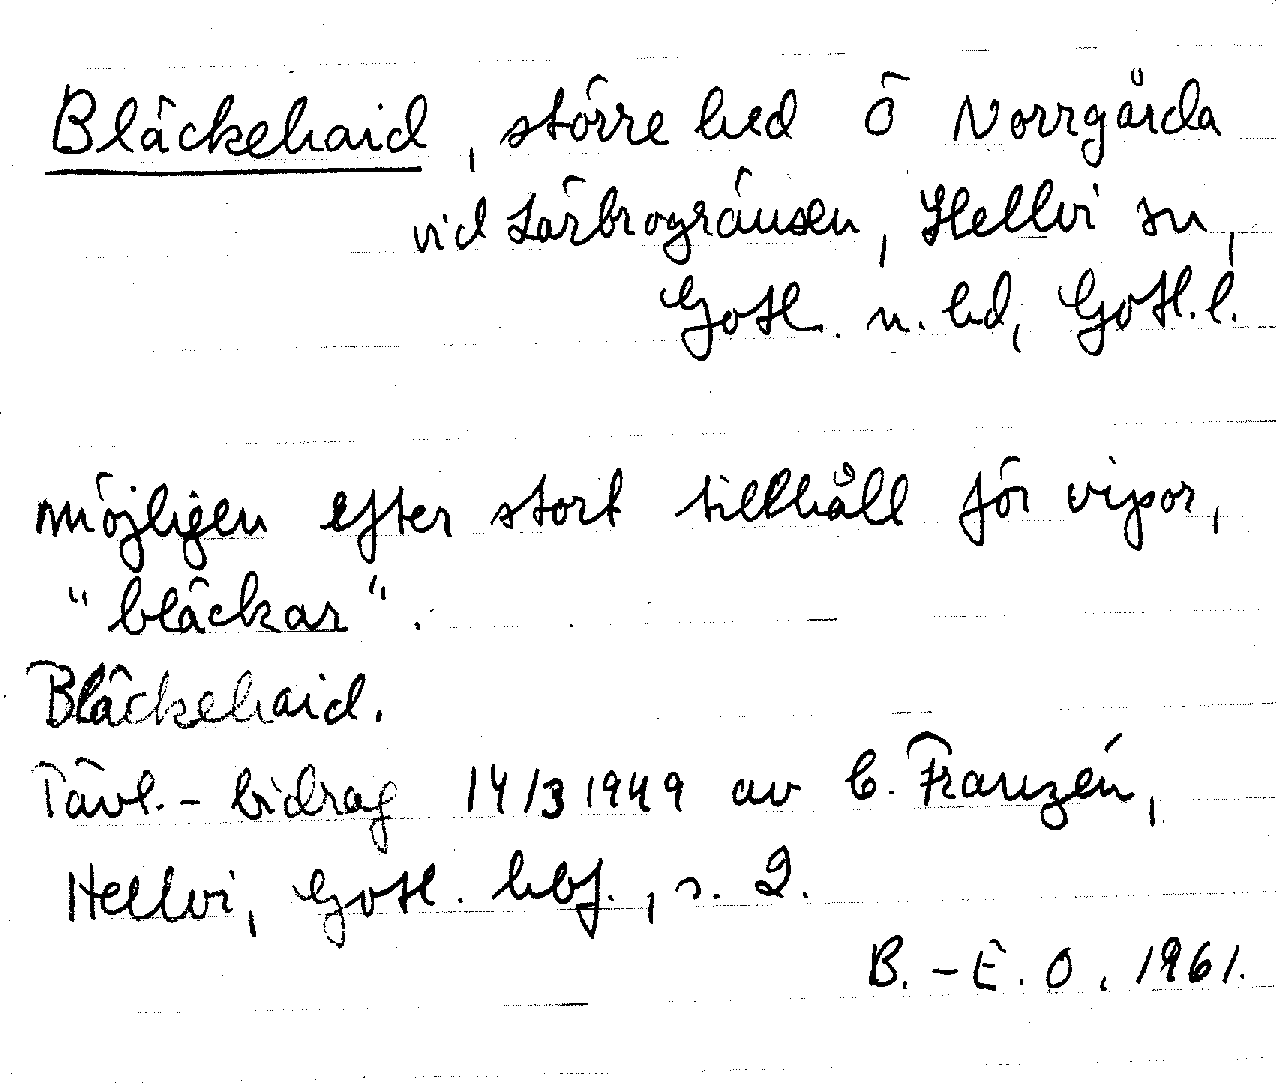 Bläckehaid, större hed Ö Norrgårda
vid Lärbrogränsen, Hellvi sn,
Gotl. n. hd, Gotl. l.
möjligen efter stort tillhåll för vipor,
"bläckar".
Bläckehaid.
Tävl.-bidrag 14/3 1949 av C. Franzén,
Hellvi, Gotl. hbf., s. 2.
B.-E. O. 1961.